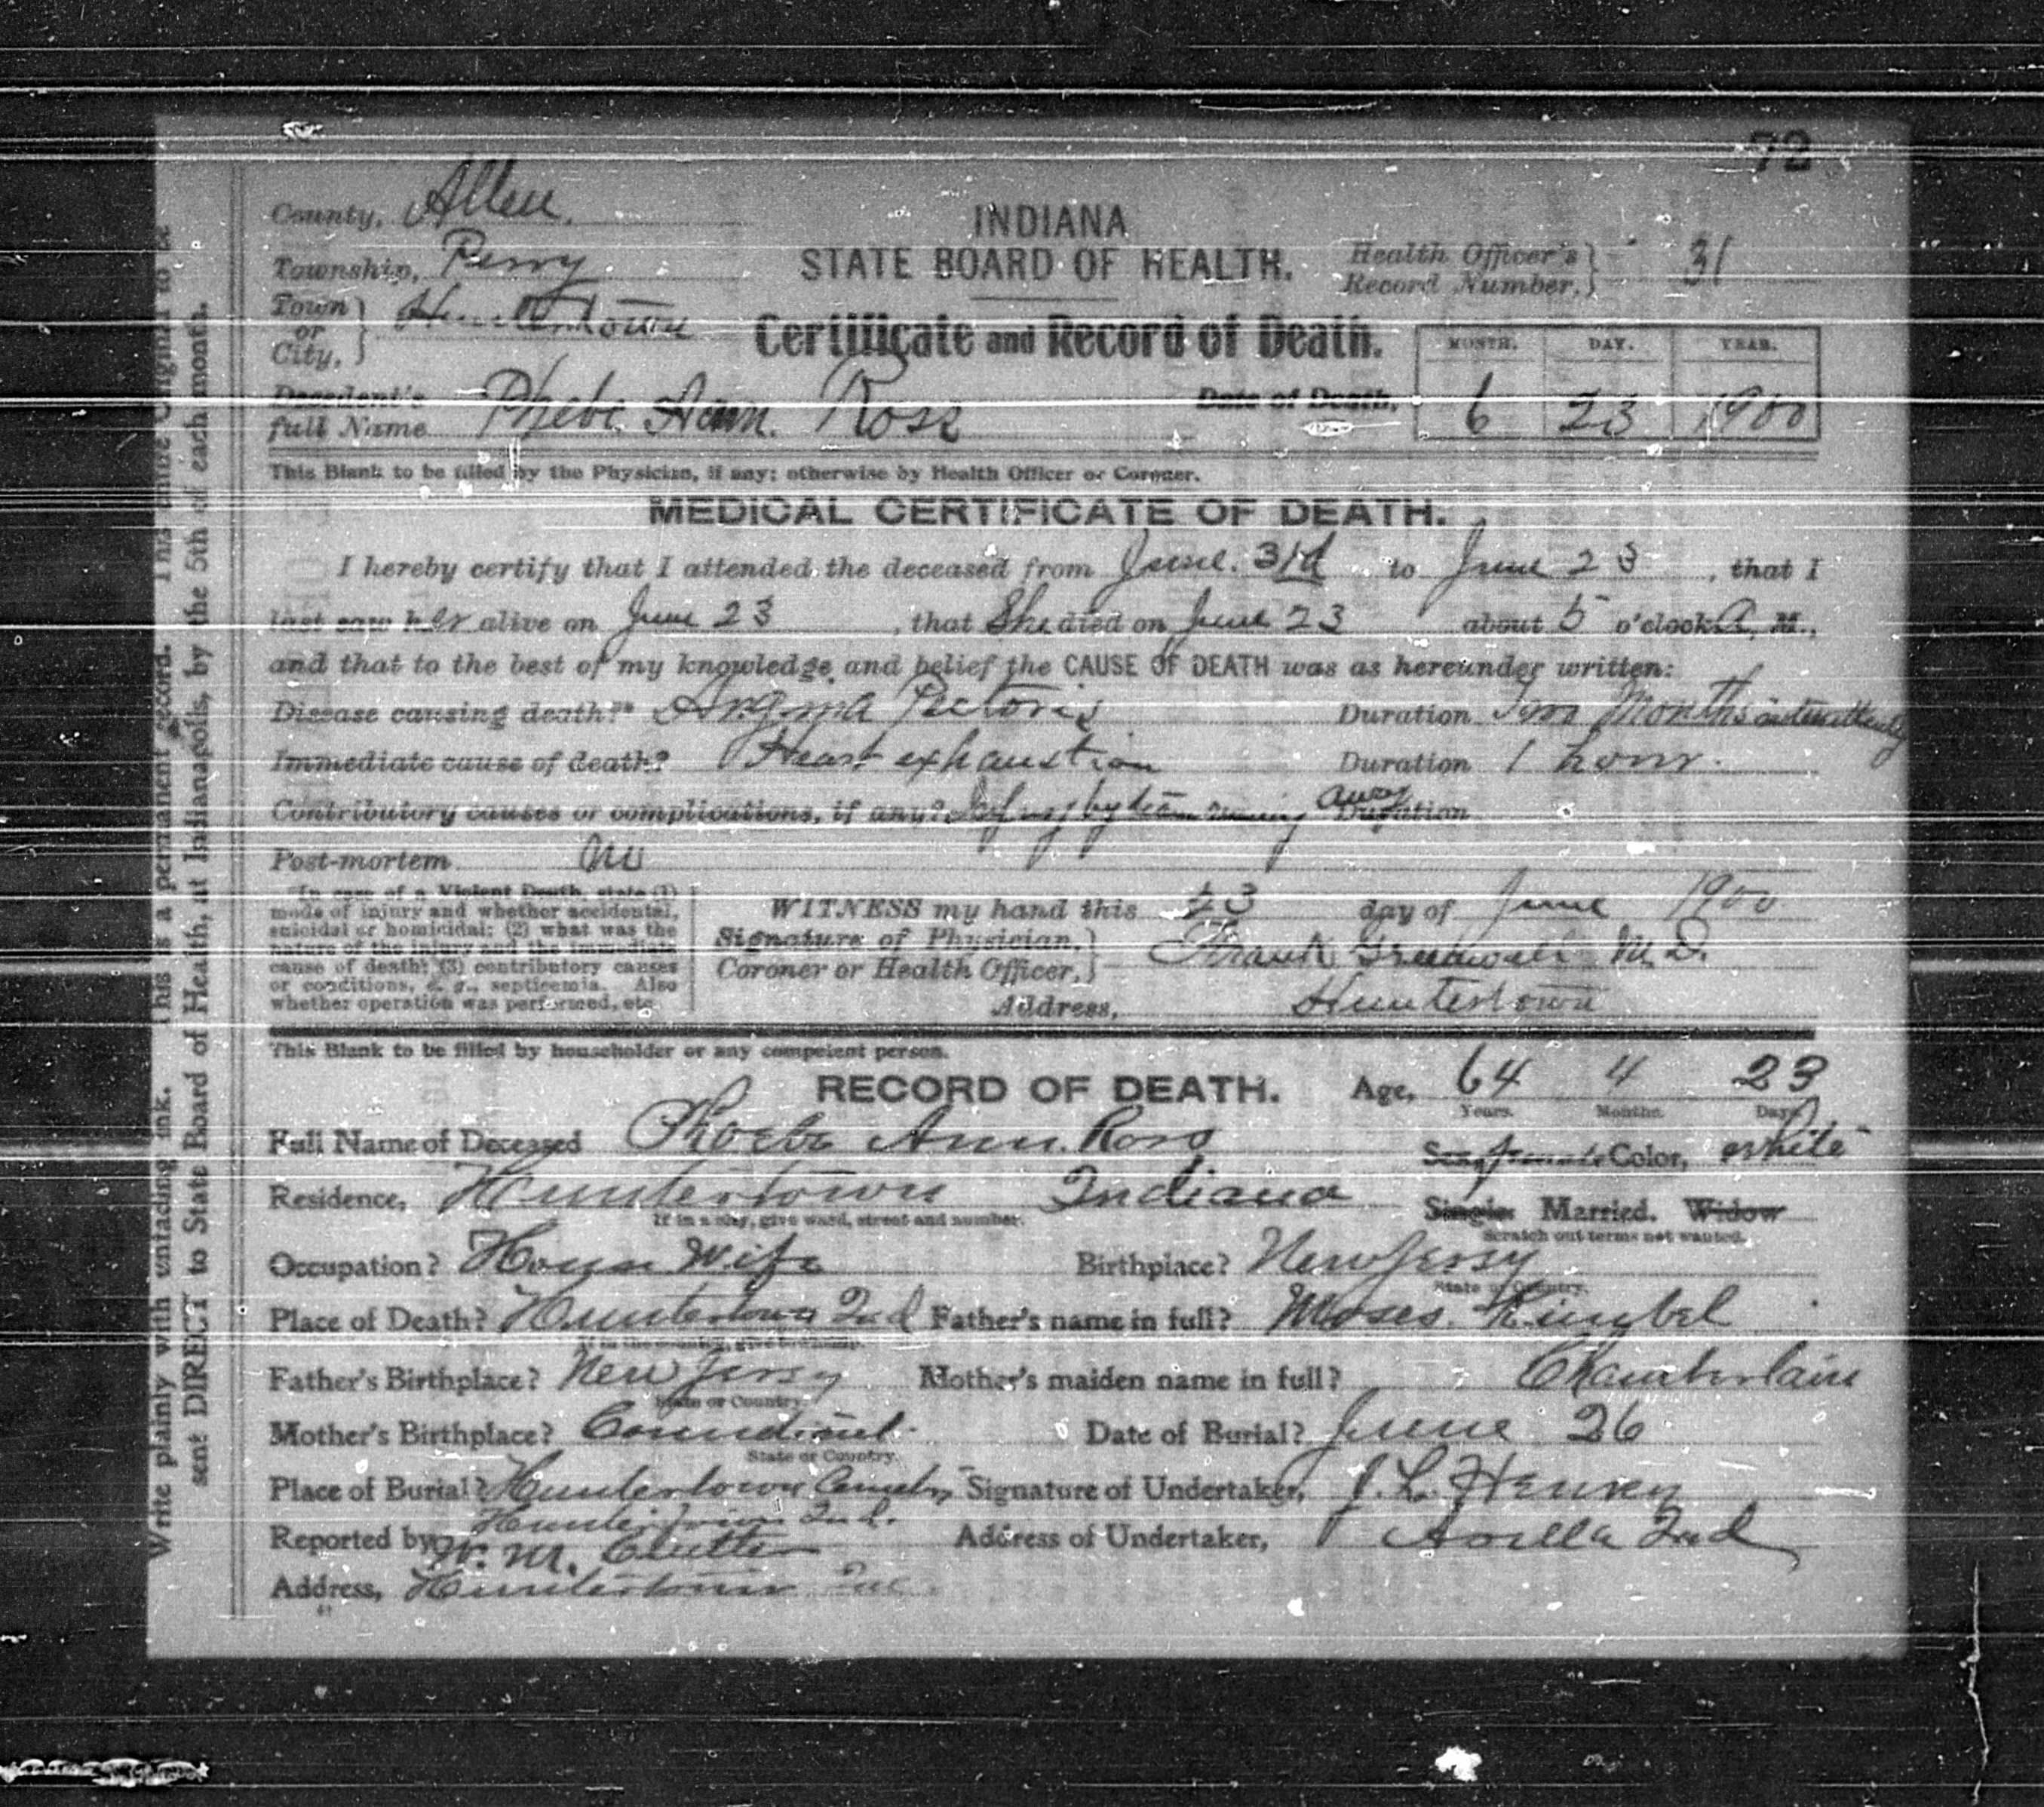 72
County, Allen.
Township, Perry
Town or City, Huntertown
INDIANA
STATE BOARD OF HEALTH.
Health Officer's Record Number, 31
Certificate and Record of Death.
MONTH. DAY. YEAR.
Decedent's full Name Phebe Ann. Ross Date of Death, 6 23 1900
This Blank to be filled by the Physician, if any; otherwise by Health Officer or Coroner.
MEDICAL CERTIFICATE OF DEATH.
I hereby certify that I attended the deceased from June. 3rd to June 23, that I
last saw her alive on June 23, that She died on June 23 about 5 o'clock A, M.,
and that to the best of my knowledge and belief the CAUSE OF DEATH was as hereunder written:
Disease causing death?* Angina Pectoris Duration Two Months intermittently
Immediate cause of death? Heart exhaustion Duration 1 hour.
Contributory causes or complications, if any? by team running away Duration
Post-mortem no
*In case of a Violent Death, state (1)
mode of injury and whether accidental,
suicidal or homicidal; (2) what was the
nature of the injury and the immediate
cause of death; (3) contributory causes
or conditions, e. g., septicemia. Also
whether operation was performed, etc.
WITNESS my hand this 23 day of June 1900
Signature of Physician, Coroner or Health Officer, Frank Greenwell M.D.
Address, Huntertown
This Blank to be filled by householder or any competent person.
RECORD OF DEATH. Age, 64 4 23
Years. Months. Days
Full Name of Deceased Phoebe Ann. Ross Sex, female Color, white
Residence, Huntertown Indiana Single. Married. Widow
If in a city, give ward, street and number. Scratch out terms not wanted.
Occupation? House Wife Birthplace? New Jersy
State or Country.
Place of Death? Huntertown Ind Father's name in full? Moses Kimbel
If in the country, give township.
Father's Birthplace? New Jersy Mother's maiden name in full? Chamberlain
State or Country.
Mother's Birthplace? Date of Burial? June 26
State or Country.
Place of Burial? Huntertown Signature of Undertaker, J. L. Henry
Huntertown Ind.
Reported by W. M. Address of Undertaker, Avilla Ind
Address, Huntertown Ind.
Write plainly with unfading ink. This is a permanent record. This entire Original to be
sent DIRECT to State Board of Health, at Indianapolis, by the 5th of each month.